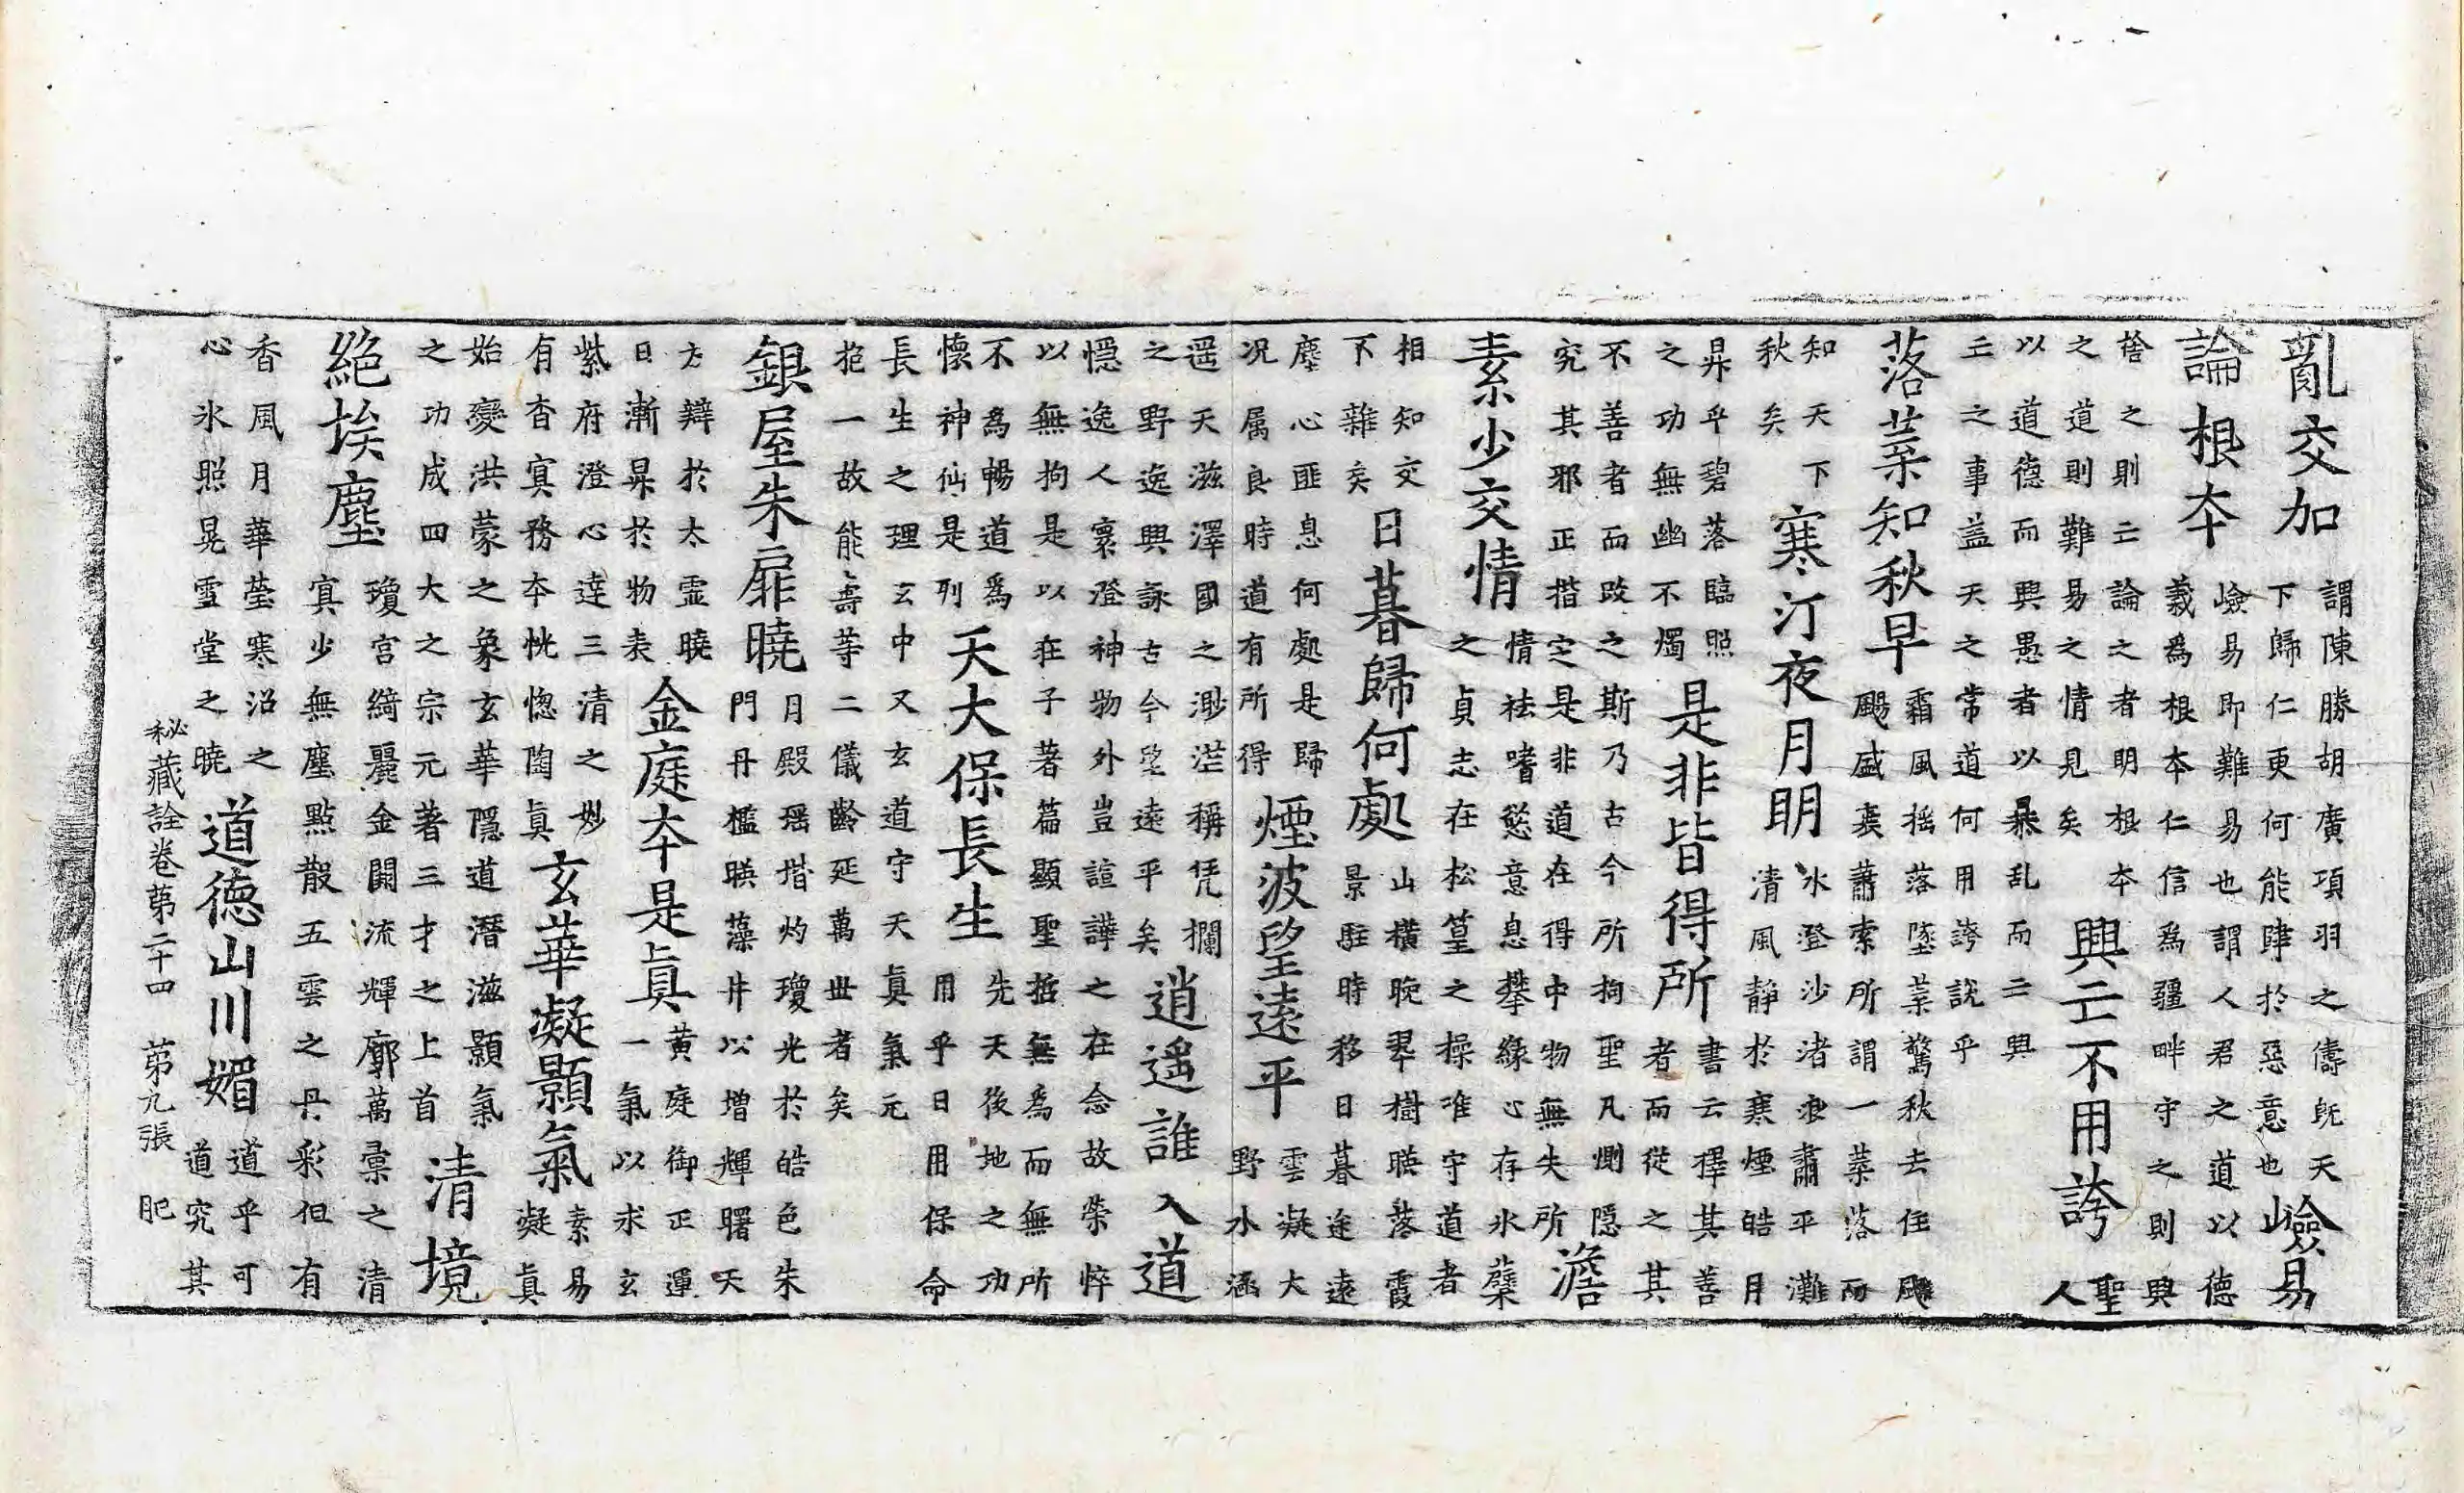 亂交加
謂陳勝胡廣項羽之儔旣天
下歸仁更何能肆於惡意也
嶮易
論根本
嶮易即難易也謂人君之道以德
義爲根本仁信爲疆畔守之則興
捨之則亡論之者明根本
之道則難易之情見矣
興亡不用誇
聖
人
以道德而興愚者以暴乱而亡興
亡之事盖天之常道何用誇說乎
落葉知秋早
霜風摇落墜葉驚秋去住飈
飈盛衰蕭索所謂一葉落而
知天下
秋矣
寒汀夜月明
水澄沙渚浪肅平灘
清風靜於寒煙皓月
昇乎碧落臨照
之功無幽不燭
是非皆得所
書云擇其善
者而從之其
不善者而改之斯乃古今所拘聖凡惻隱
究其邪正揩定是非道在得中物無失所
澹
素少交情
情祛嗜慾意息攀緣心存氷蘗
之貞志在松篁之操唯守道者
相知交
下雜矣
日暮歸何處
山橫晚翠樹暎落霞
景駐時移日暮途遠
塵心匪息何處是歸
况属良時道有所得
煙波望遠平
雲凝大
野水涵
遥天滋澤國之渺茫稱凭欄
之野逸興詠古今望遠平矣
逍遥誰入道
隱逸人寰澄神物外豈諠譁之在念故榮悴
以無拘是以在子著篇顯聖哲無爲而無所
不為暢道爲
懷神仙是列
天大保長生
先天後地之功
用乎日用保命
長生之理玄中又玄道守天眞氣元
抱一故能壽等二儀齡延萬世者矣
銀屋朱扉曉
月殿瑶揩灼瓊光於皓色朱
門丹檻暎藻井以增輝曙天
方辯於太霊曉
日漸昇於物表
金庭本是眞
黄庭御正運
一氣以求玄
紫府澄心達三清之妙
有杳冥務本恍惚陶眞
玄華凝顥氣
素易
凝眞
始變洪蒙之象玄華隱道潛滋顥氣
之功成四大之宗元著三才之上首
清境
絶埃塵
瓊宮綺麗金闕流輝廓萬彙之清
冥少無塵點散五雲之丹彩但有
香風月華瑩寒沼之
心氷照晃雪堂之曉
道德山川媚
道乎可
道究其
秘藏詮卷苐二十四 苐九張 肥